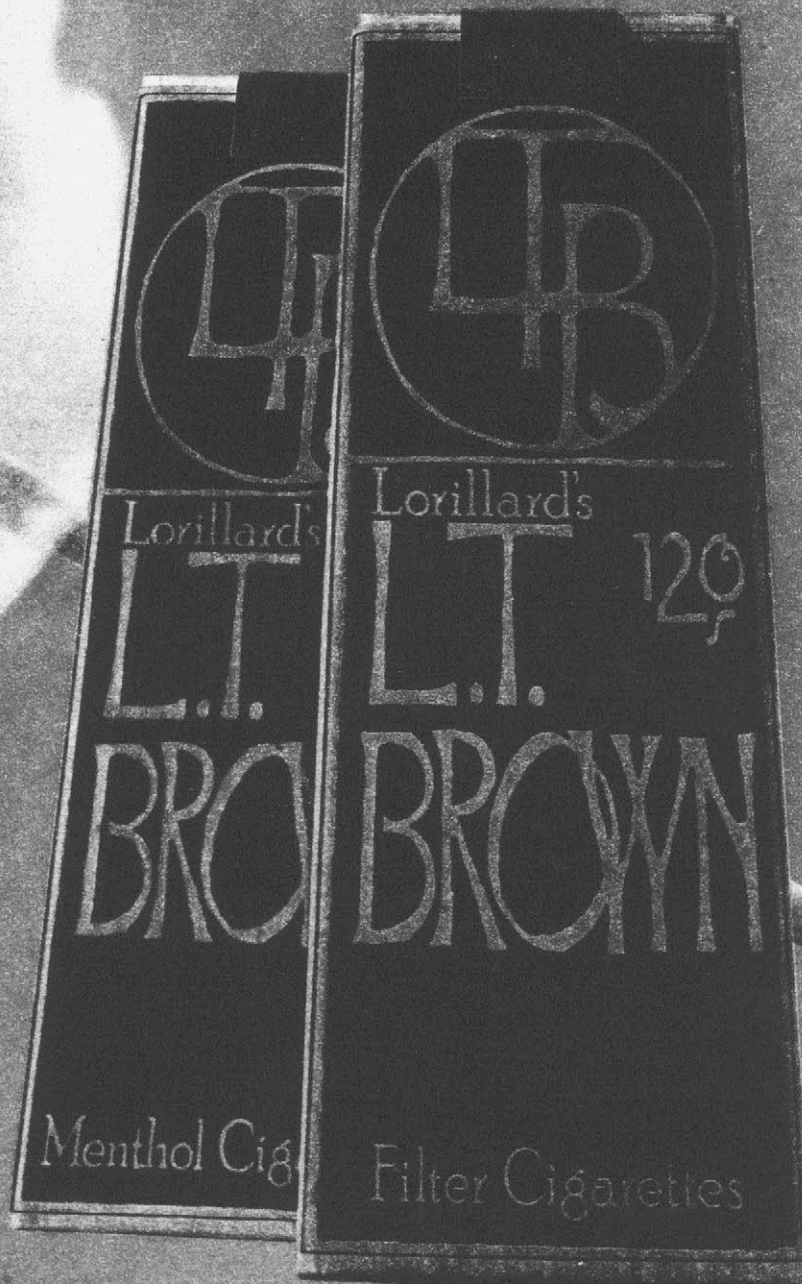 LTB
Lorillard's
L.T.
BRO
Menthol Cig
LTB
Lorillard's
L.T.
120s
BROWN
Filter Cigarettes